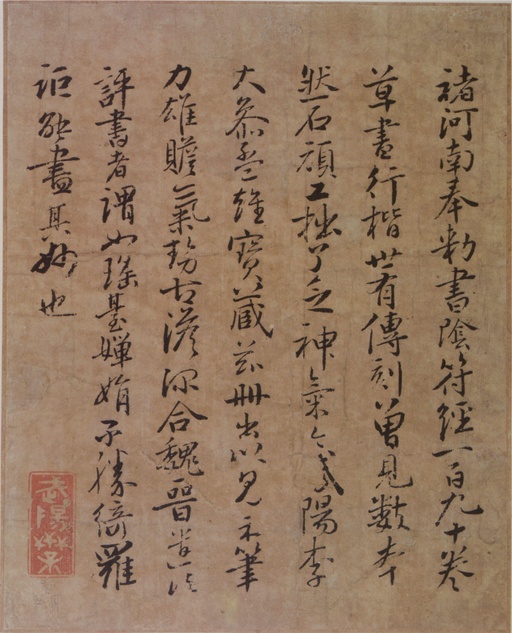 褚河南奉勅書陰符經一百九十卷
草書行楷世有傳刻曾見數本
然石頑工拙了乏神氣今武陽李
大參孟雄寶藏茲冊出以見示筆
力雄贍氣韵古澹深合魏晉法
評書者謂如瑤臺嬋娟不勝綺羅
詎能盡其妙也
武陽